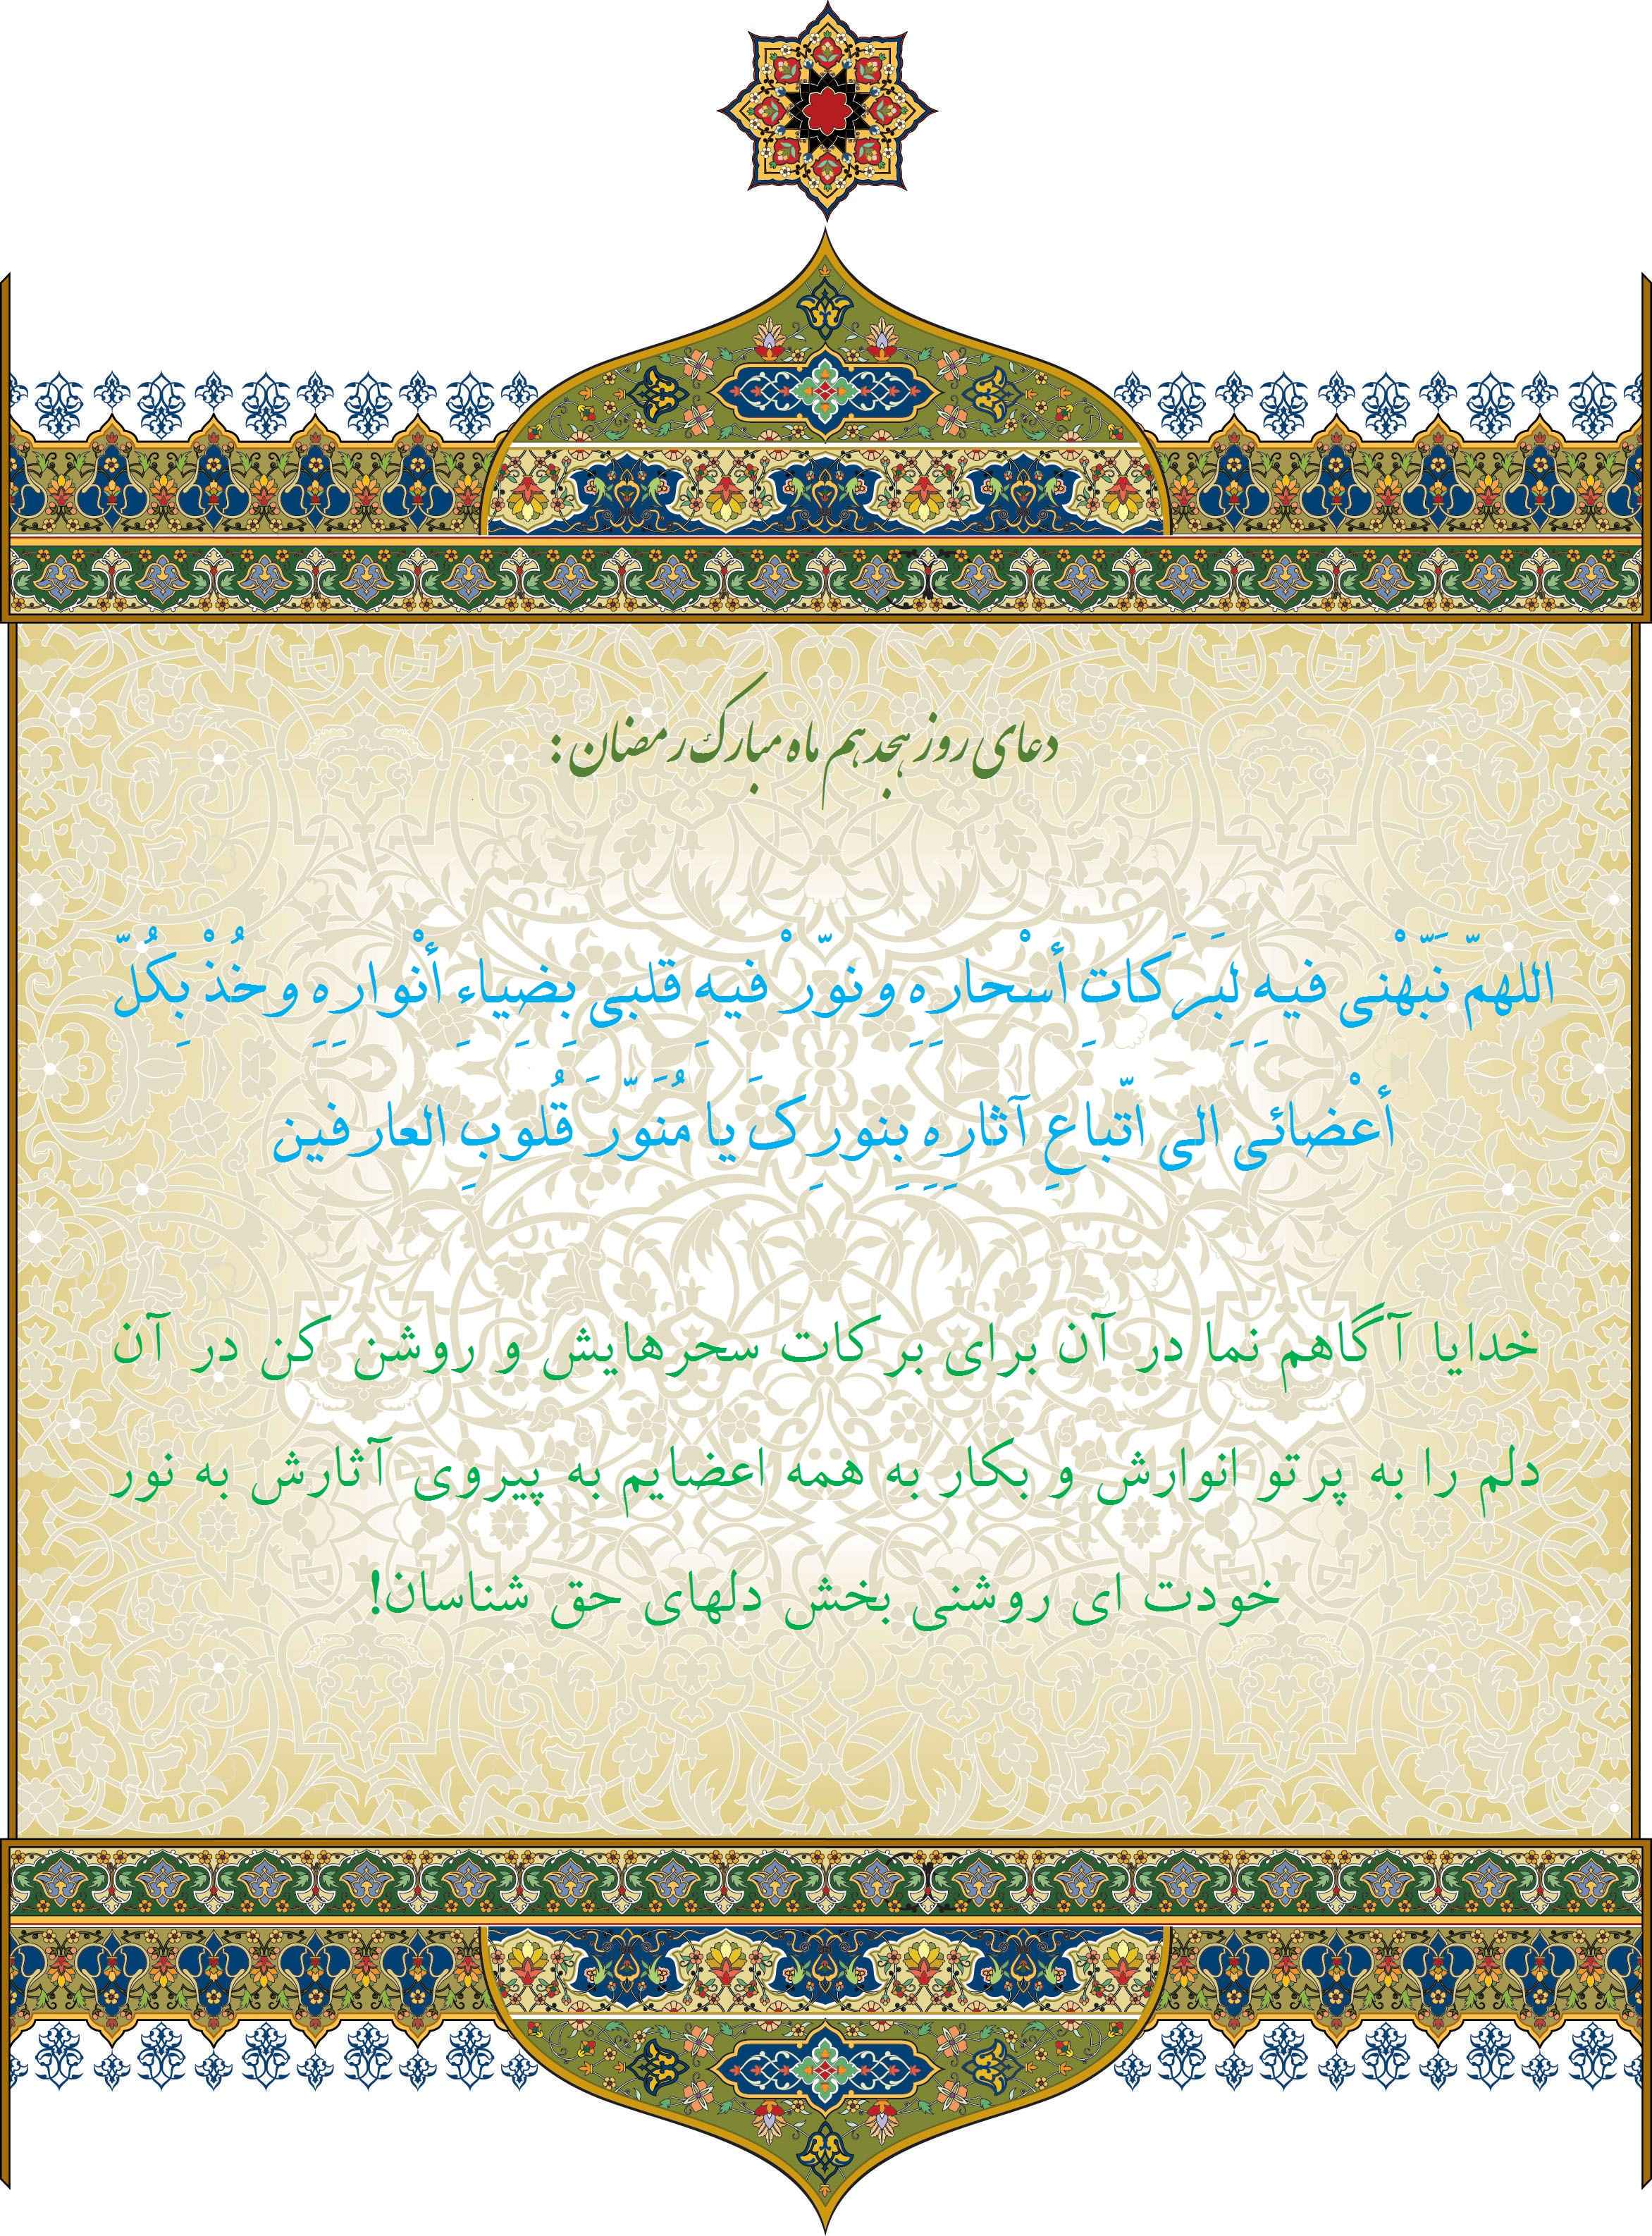 دعای روز هجدهم ماه مبارک رمضان :
اللهمّ نَبّهْنی فیهِ لِبَرَکاتِ أسْحارِهِ ونوّرْ فیهِ قلبی بِضِیاءِ أنْوارِهِ وخُذْ بِکُلّ
أعْضائی الی اتّباعِ آثارِهِ بِنورِکَ یا مُنَوّرَ قُلوبِ العارفین
خدایا آگاهم نما در آن برای برکات سحرهایش و روشن کن در آن
دلم را به پرتو انوارش و بکار به همه اعضایم به پیروی آثارش به نور
خودت ای روشنی بخش دلهای حق شناسان!